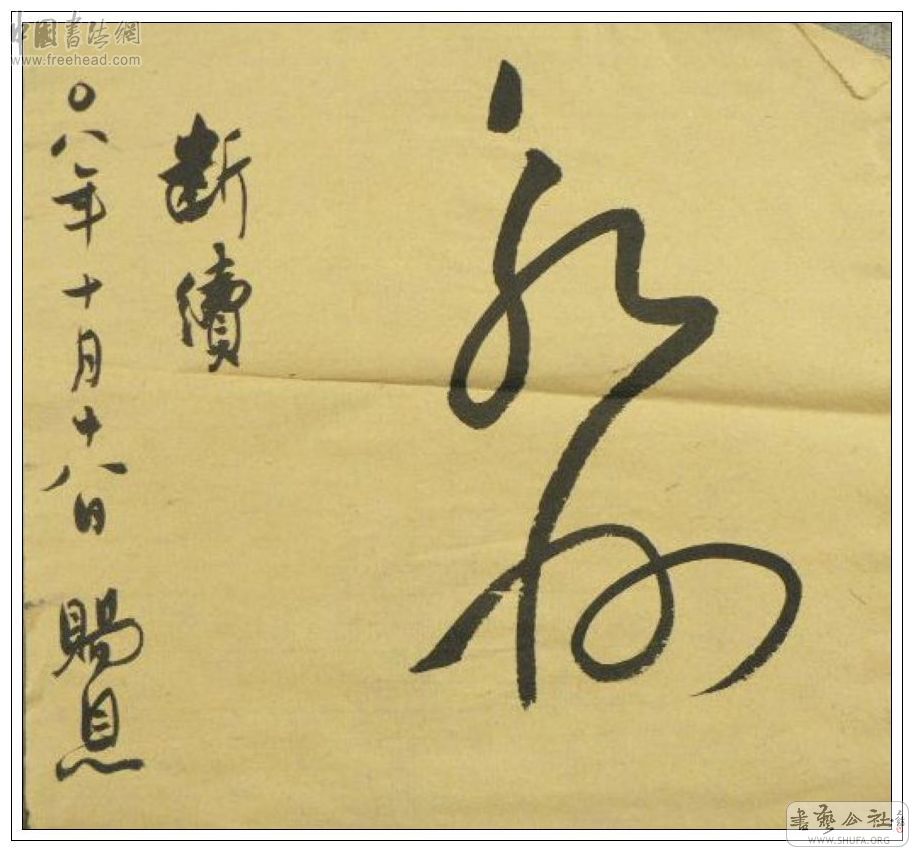 永和
斷續
〇八年十月十八日 賜息
中国书法網
www.freehead.com
書藝公社
WWW.SHUFA.ORG